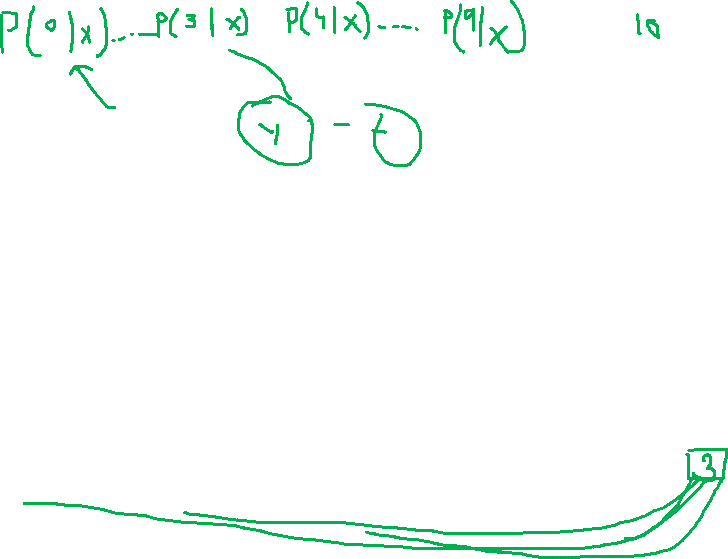 P(0|x)...... P(3|x) P(4|x)...... P(9|x) 10
y - t
3